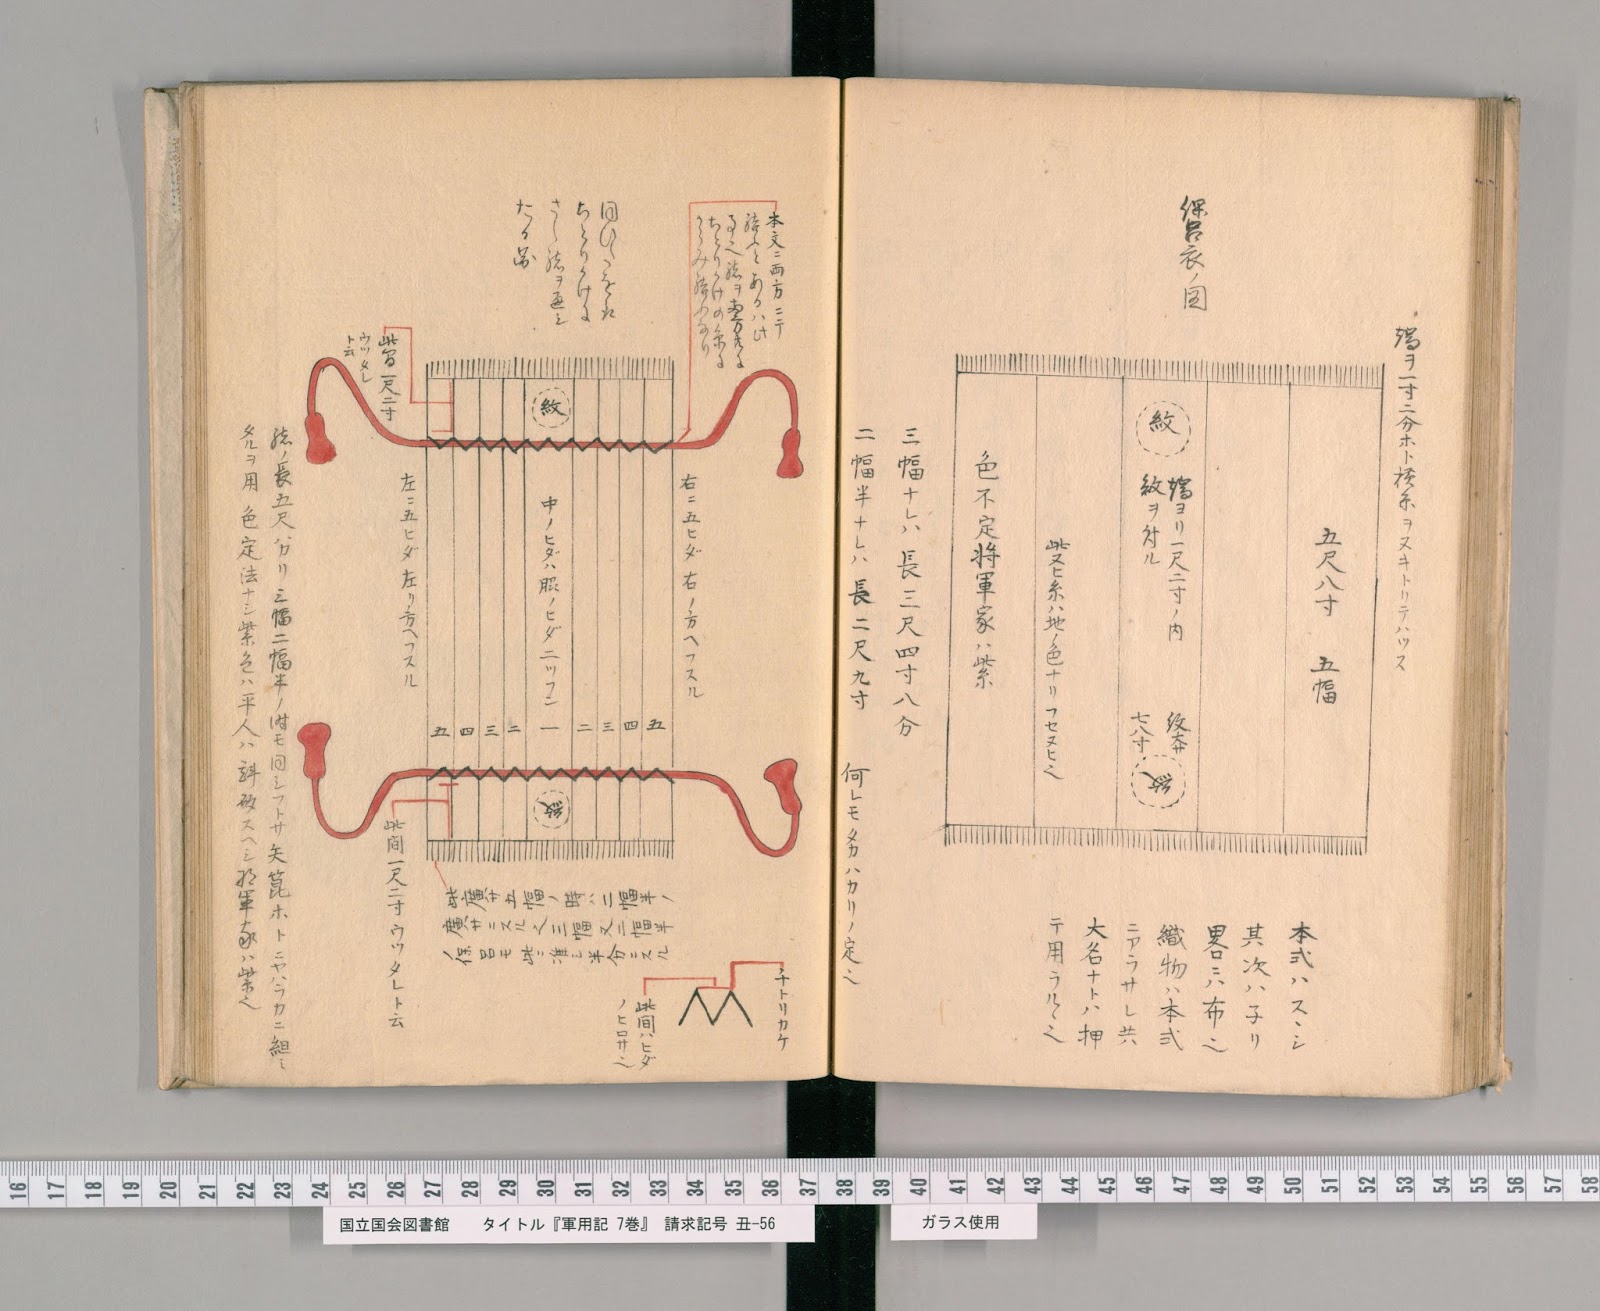 保呂衣ノ図
端ヲ一寸二分ホト横糸ヲヌキトリテハツス
五尺八寸 五幅
紋
端ヨリ一尺二寸ノ内
紋ヲ付ル
紋大サ
七八寸
紋
此ヌヒ糸ハ地ノ色ナリフセヌヒ也
色不定将軍家ハ紫
本式ハスヽシ
其次ハ子リ
畧ニハ布也
織物ハ本式
ニアラサレ共
大名ナトハ押
テ用ラルヽ也
三幅ナレハ長三尺四寸八分
二幅半ナレハ長二尺九寸
何レモタカハカリノ定也
本文ニ両方ニテ
同じく
ちとりかけに
さし緒ヲ通シ
たる図
此間一尺二寸
ウツタレ
ト云
紋
右ニ五ヒダ右ノ方ヘフスル
中ノヒダハ脹ノヒダニツフシ
左ニ五ヒダ左リノ方ヘフスル
五 四 三 二 一 二 三 四 五
紋
此間一尺二寸ウツタレト云
此廣サ五幅ノ時ハ二幅半ノ
廣サニスル也三幅又二幅半
ノ保呂モ此ニ准シ半分ニスル
チトリカケ
此間ハヒダ
ノヒロサ也
緒ノ長五尺ハカリ三幅二幅半ノ時モ同シフトサ矢箆ホトニヤハラカニ組シ
タルヲ用色定法ナシ紫色ハ平人ハ斟酌スヘシ将軍家ハ紫也
16 17 18 19 20 21 22 23 24 25 26 27 28 29 30 31 32 33 34 35 36 37 38 39 40 41 42 43 44 45 46 47 48 49 50 51 52 53 54 55 56 57 58
国立国会図書館 タイトル『軍用記 7巻』 請求記号 丑-56
ガラス使用